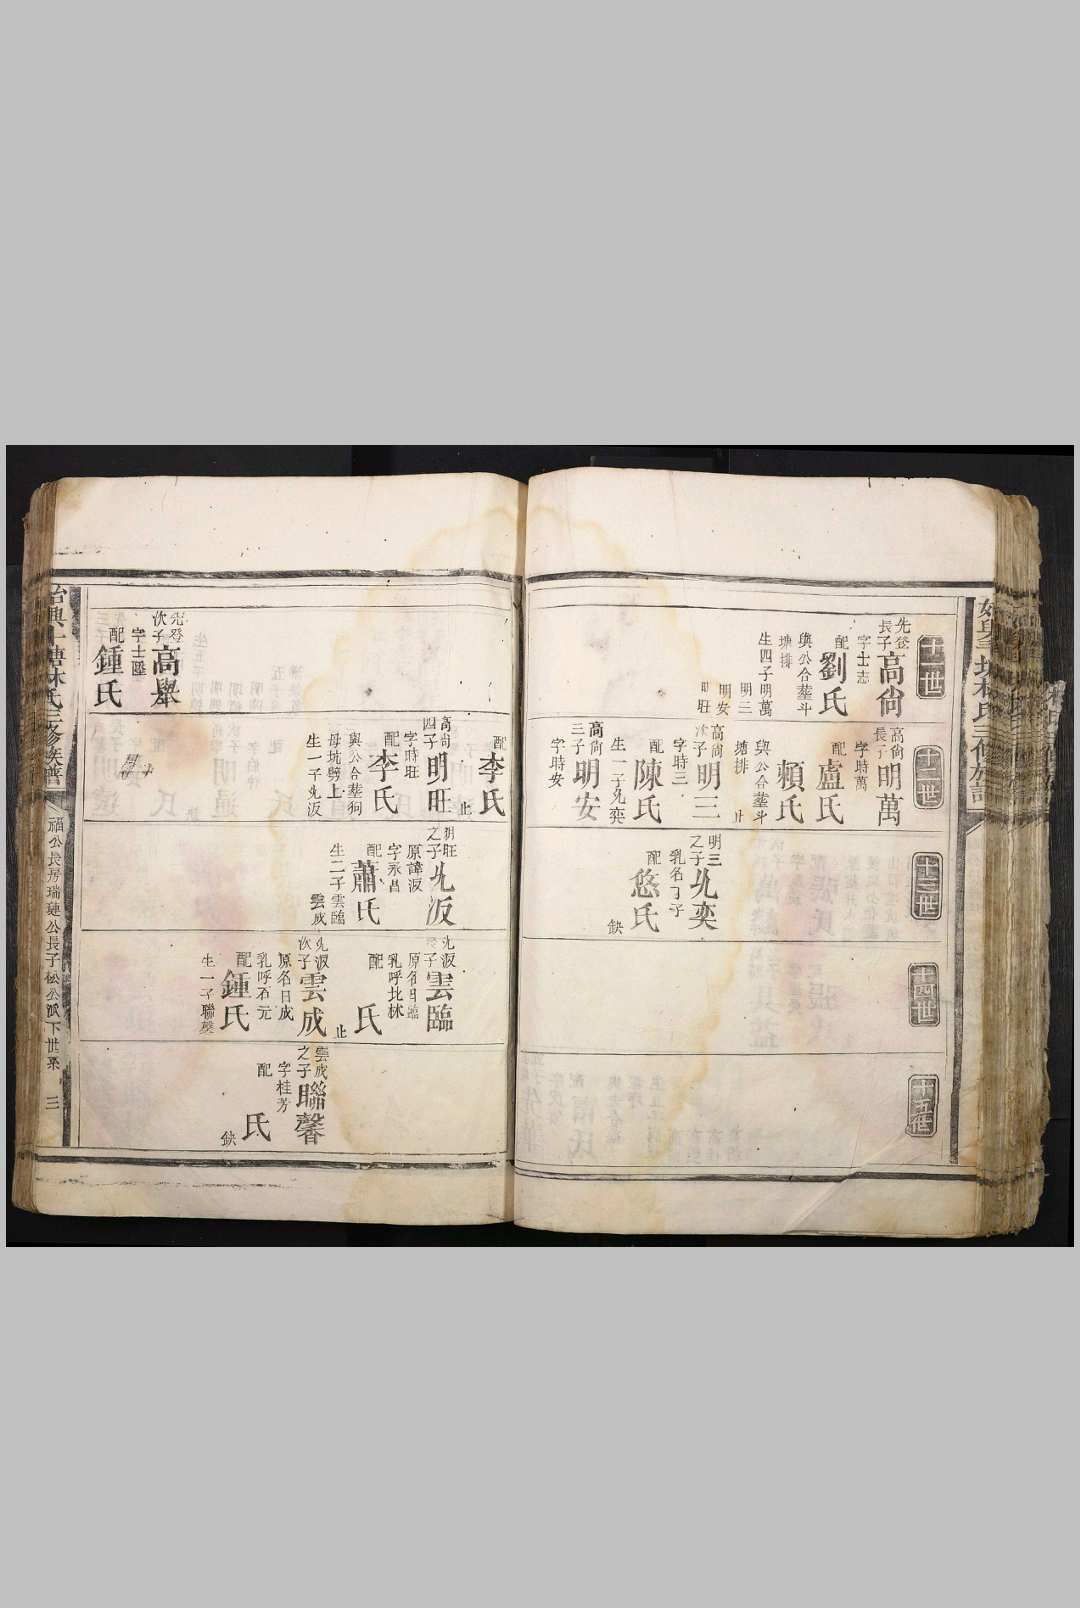 十一世
先登
長子
高尙
字士志
配
劉氏
與公合葬斗
塘排
生四子明萬
明三
明安
明旺
十二世
高尙
長子
明萬
字時萬
配
盧氏
賴氏
與公合葬斗
塘排
止
高尙
次子
明三
字時三
配
陳氏
生一子允奕
高尙
三子
明安
字時安
十三世
明三
之子
允奕
乳名丁子
配
悠氏
缺
十四世
十五世
先登
次子
高舉
字士
配
鍾氏
配
李氏
止
高尙
四子
明旺
字時旺
配
李氏
與公合葬狗
母坑劈上
生一子允汳
明旺
之子
允汳
原諱汳
字永昌
配
蕭氏
生二子雲臨
雲成
允汳
長子
雲臨
原名日臨
乳呼北林
配
氏
止
允汳
次子
雲成
原名日成
乳呼石元
配
鍾氏
生一子聯馨
雲成
之子
聯馨
字桂芳
配
氏
缺
始興十塘林氏三修族譜
福公長房瑞璉公長子松公派下世系
三